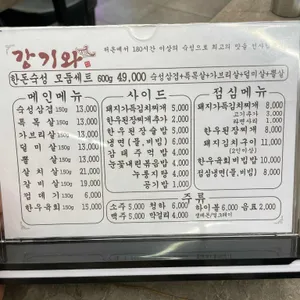 강기와
터몬에서 180시간 이상의 숙성으로 최고의 맛을
한돈숙성 모듬세트 600g 49,000 숙성삼겹+특목살+가브리살+덜미살+뽈살
메인메뉴
숙성삼겹 150g 13,000
특목살 150g 13,000
가브리살 150g 13,000
덜미살 150g 13,000
뽈살 150g 13,000
살치살 150g 21,000
갈비살 150g 19,000
껍데기 150g 6,000
한우육회 150g 15,000
사이드
돼지가득김치찌개 5,000
한우된장찌개추가 2,000
한우된장술밥 5,000
냉면(물,비빔) 8,000
감태주먹밥 4,000
눈꽃내린볶음밥 4,000
누룽지탕 4,000
공기밥 1,000
점심메뉴
돼지가득김치찌개 8,000
고기추가 3,000
라면사리 1,000
한우된장찌개 8,000
돼지김치구이 11,000
(2인이상)
한우육회비빔밥 10,000
점심냉면(물,비빔) 8,000
주류
소주 5,000 청하 6,000 하이볼 6,000 음료 2,000
맥주 5,000 막걸리 4,000